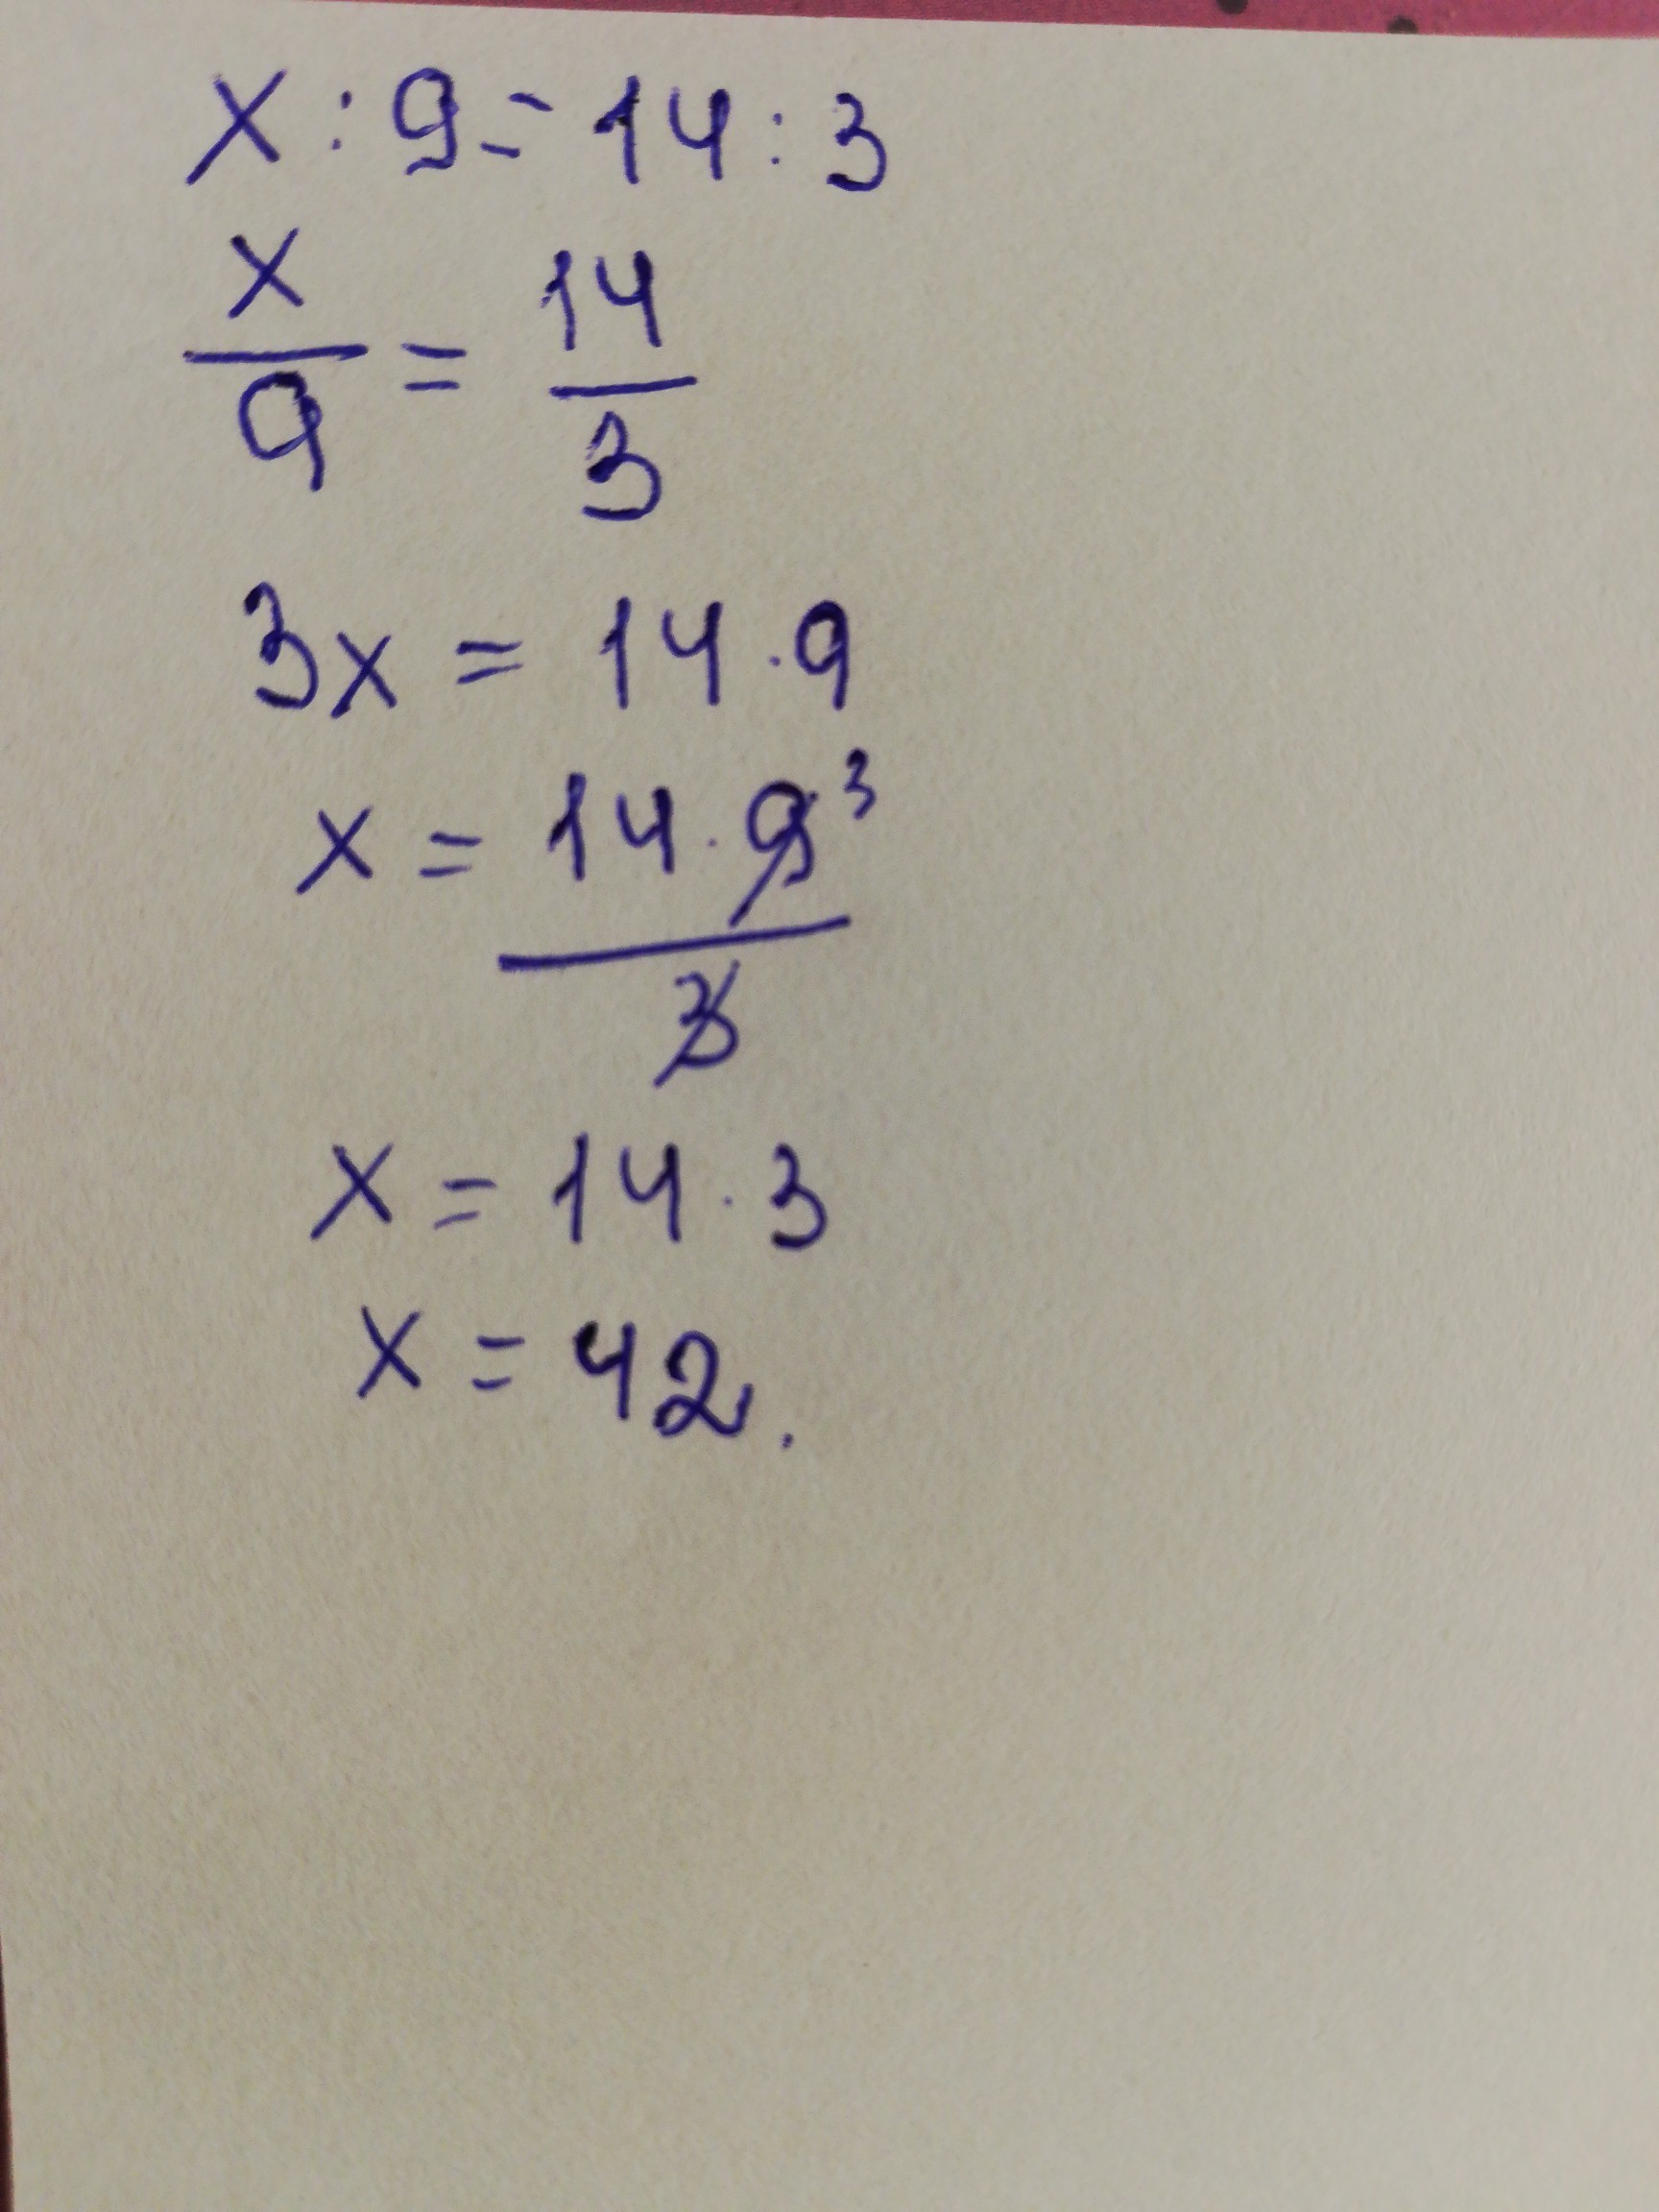 x : 9 = 14 : 3
x/9 = 14/3
3x = 14 · 9
x = 14 · 9 3 / 3
x = 14 · 3
x = 42.